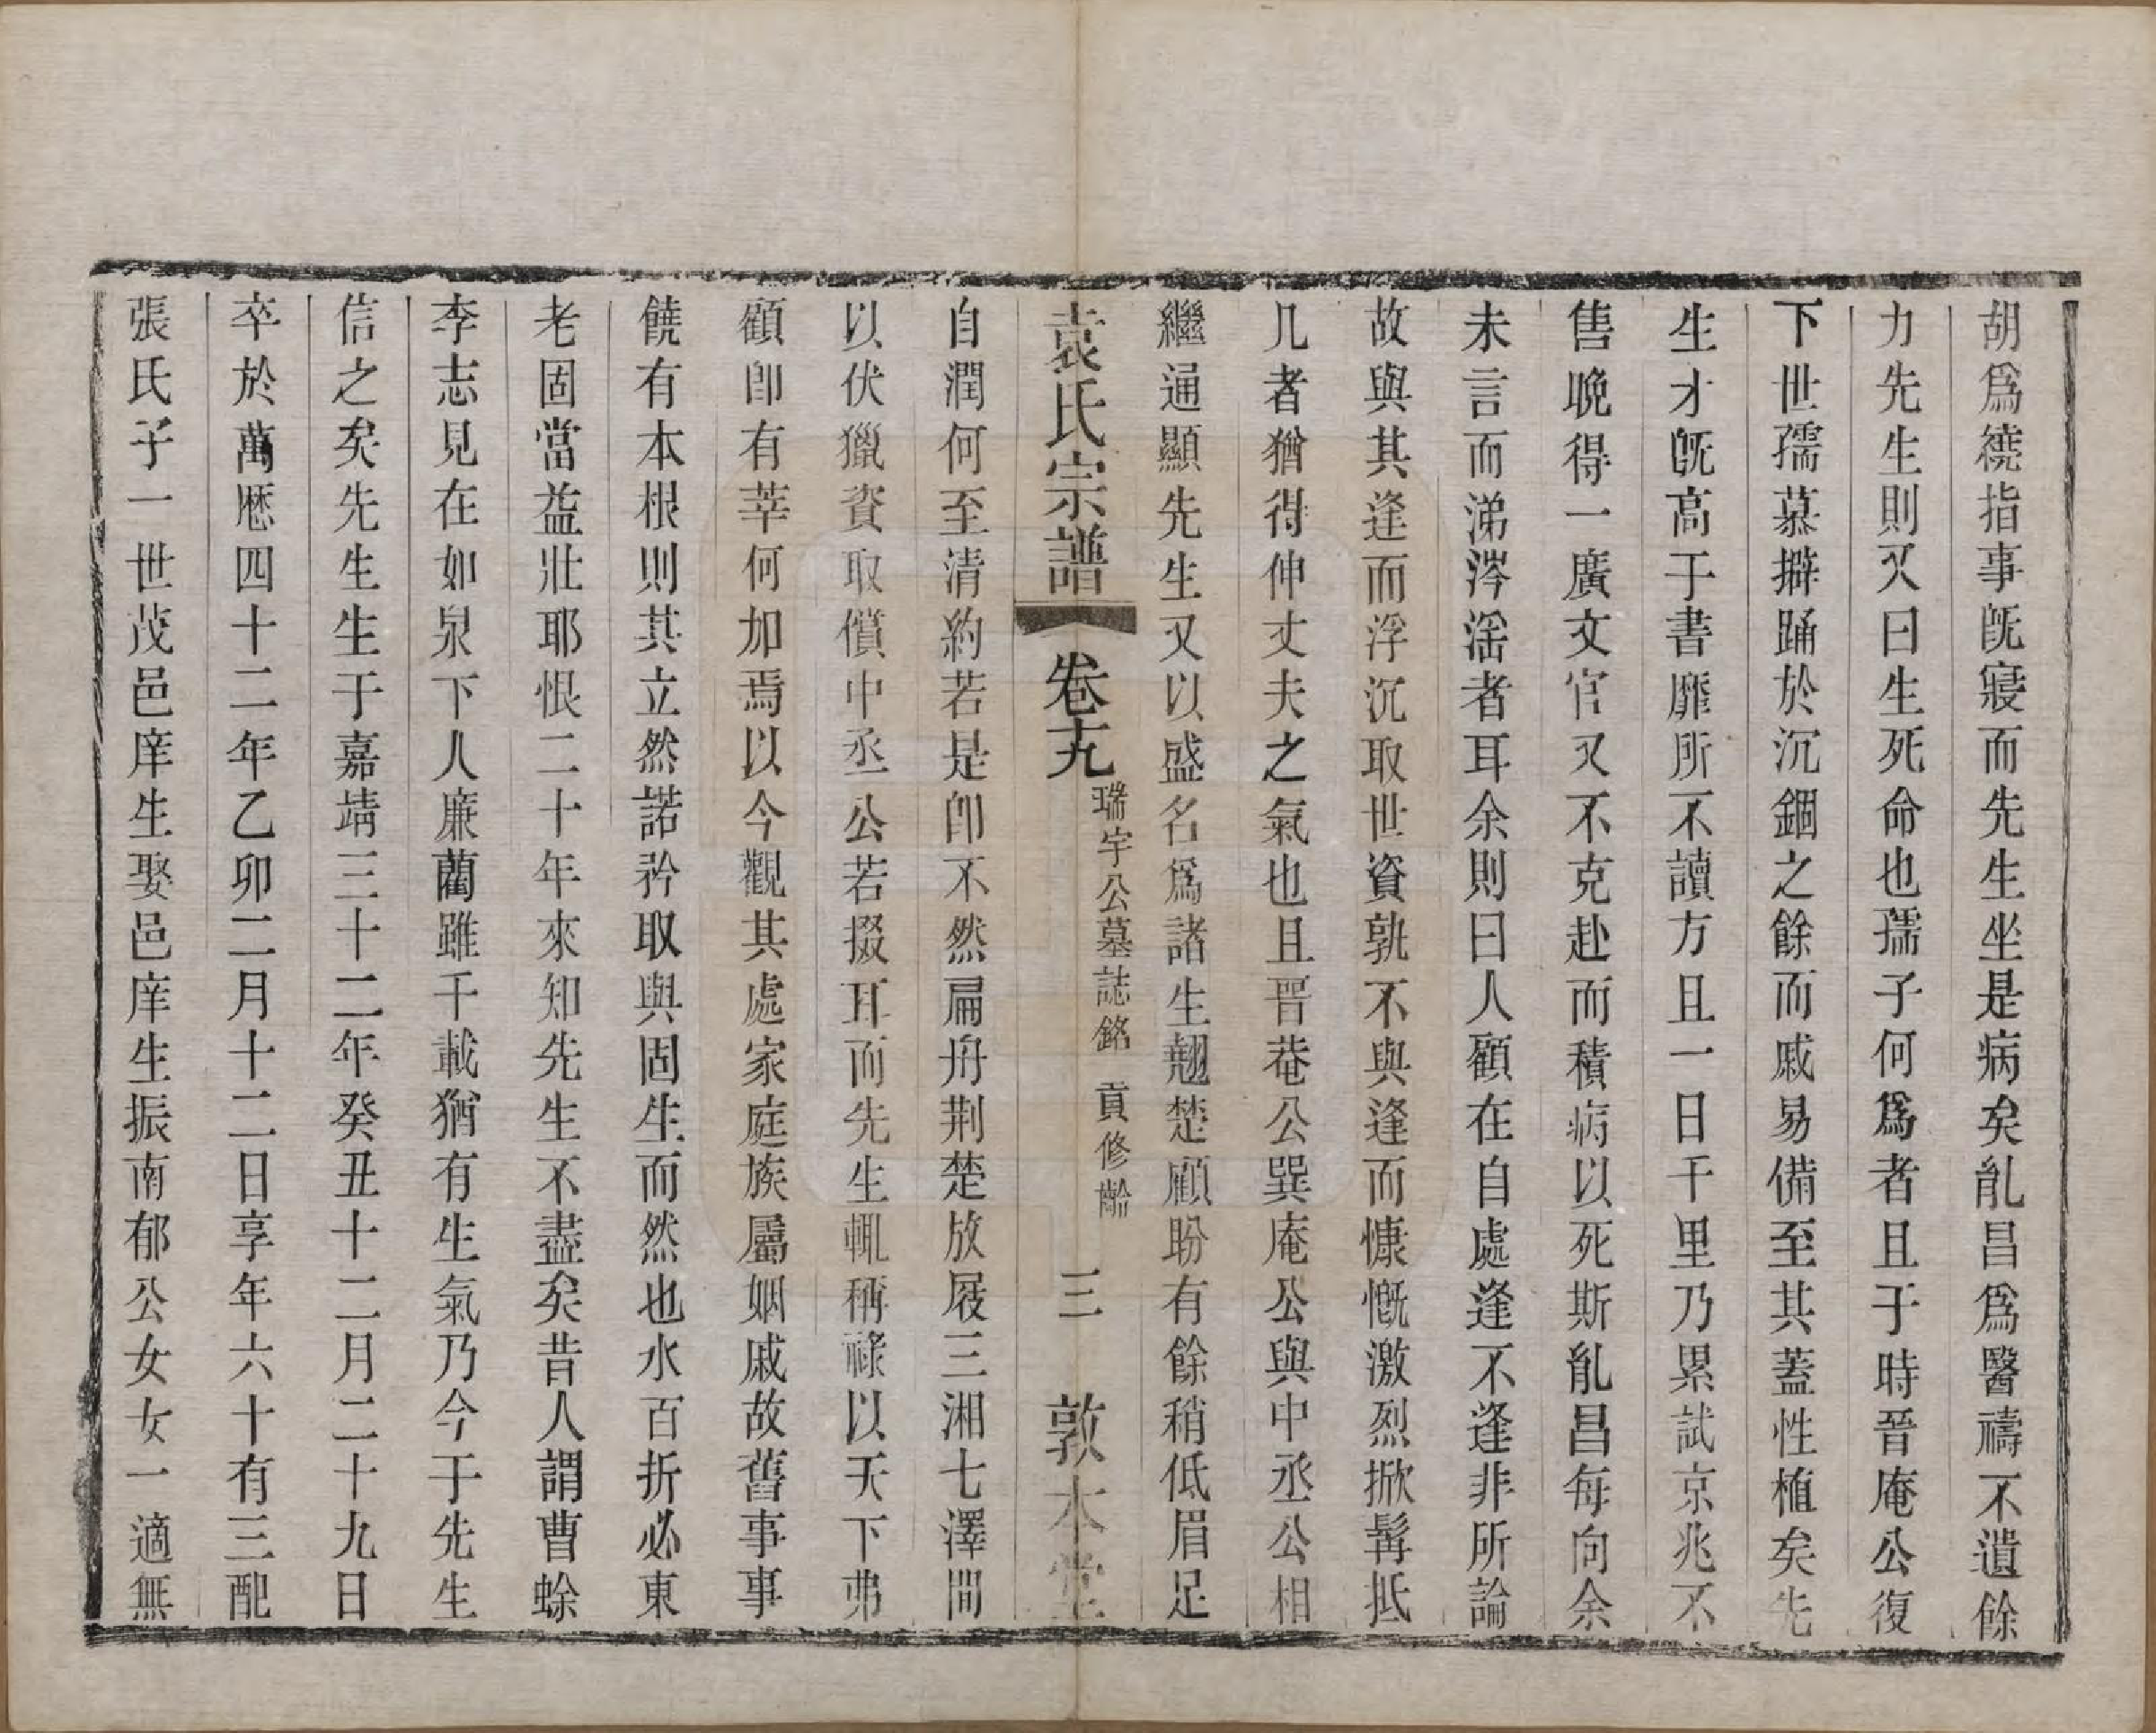 胡爲繞指事既寢而先生坐是病矣胤昌爲醫禱不遺餘
力先生則又曰生死命也孺子何爲者且于時晉庵公復
下世孺慕擗踊於沉錮之餘而戚易備至其蓋性植矣先
生才既高于書靡所不讀方且一日千里乃累試京兆不
售晚得一廣文官又不克赴而積病以死斯胤昌每向余
未言而涕涔滛者耳余則曰人顧在自處逢不逢非所論
故與其逢而浮沉取世資孰不與逢而慷慨激烈掀髯抵
几者猶得伸丈夫之氣也且晋菴公巽庵公與中丞公相
繼通顯先生又以盛名爲諸生翹楚顧盼有餘稍低眉足
袁氏宗譜 卷十九 瑞宇公墓誌銘 貢修齡 三 敦本堂
自潤何至清約若是卽不然扁舟荆楚放屐三湘七澤間
以伏獵資取償中丞公若掇耳而先生輒稱祿以天下弗
顧卽有莘何加焉以今觀其處家庭族屬姻戚故舊事事
饒有本根則其立然諾矜取與固生而然也水百折必東
老固當益壯耶恨二十年來知先生不盡矣昔人謂曹蜍
李志見在如泉下人廉藺雖千載猶有生氣乃今于先生
信之矣先生生于嘉靖三十二年癸丑十二月二十九日
卒於萬厯四十二年乙卯二月十二日享年六十有三配
張氏子一世茂邑庠生娶邑庠生振南郁公女女一適無